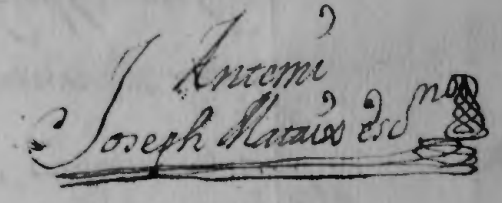 Antemi
Joseph Mataix esc^no